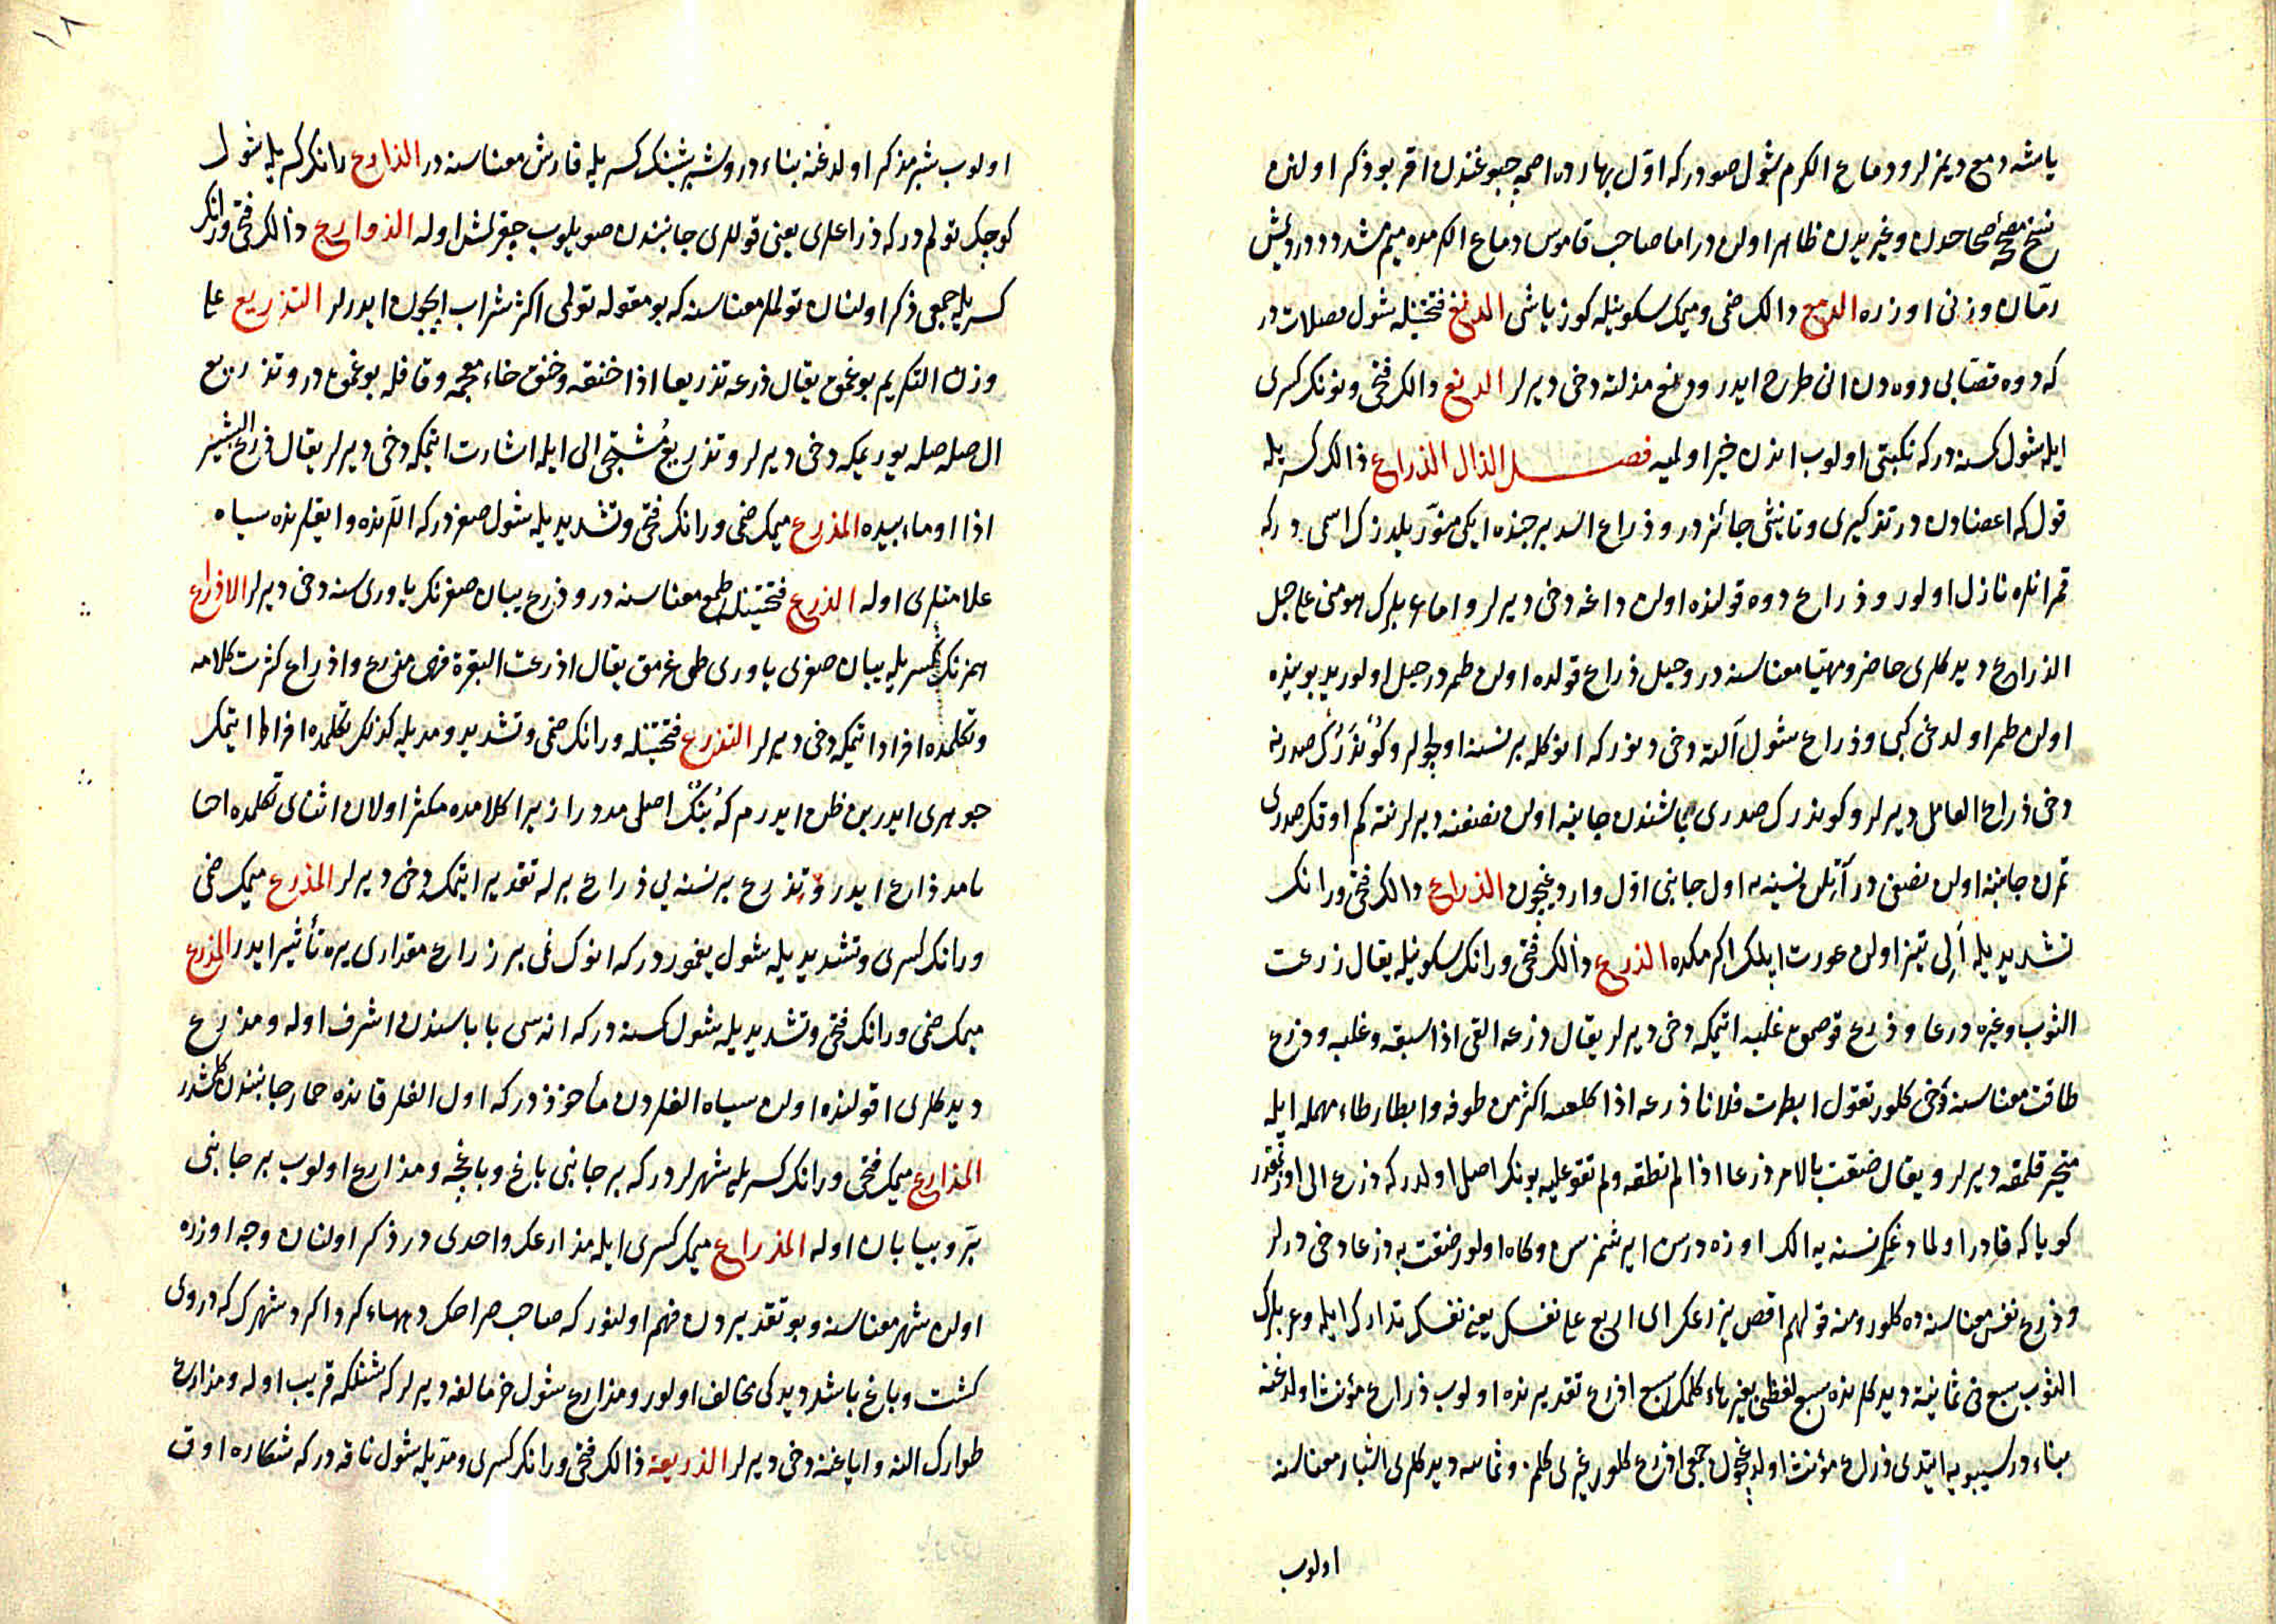 یاشه دمع دیمزلر و دماع الکرم شول صودر که اوّل بهارده اصمه چبوغندن اقر بو ذکر اولنن
نسخ مصححۀ صحاحدن و غیریدن ظاهر اولن در اما صاحب قاموس دماع الکرمده میم مشدد در دیمش
رمّان وزنی اوزره الدمع دالک ضمی و میمک سکونیله کوز یاشی الدنع فتحتینله شول فضلات در
که دوه قصّابی دوه دن انی طرح ایدر و دنع مذلته دخی دیرلر الدنع دالک فتحی و نونک کسری
ایله شول کسنه در که نکبتی اولوب انده خیر اولمیه فصل الذال الذراع ذالک کسریله
قول که اعضادن در تذکیری و تأنیثی جائز در و ذراع اسد برجنده ایکی منوّر یلدزک اسمی در که
قمر انلره نازل اولور و ذراع دوه قولنده اولن داغه دخی دیرلر و اما عربلرک هو منی علی حبل
الذراع دیدکلری حاضر و مهیّا معناسنه در و حبل ذراع قولده اولن طمر در حبل الورید بوینده
اولن طمر اولدغی کبی و ذراع شول آلته دخی دینور که انوکله بر نسنه اولچرلر و کوندرک صدرینه
دخی ذراع العامل دیرلر و کوندرک صدری باشندن جانبه اولن نصفنه دیرلر نته کم اوقک صدری
تمرن جانبنه اولن نصفی در آتیلن نسنیه اول جانبی اوّل واردیغیچون الذراع ذالک فتحی و رانک
تشدیدیله اَلی تیز اولن عورت ایلک اکرمکده الذرع ذالک فتحی و رانک سکونیله یقال ذرعت
الثوب و غیره ذرعا و ذرع قوصمق غلبه ایتمکه دخی دیرلر یقال ذرعه القی اذا سبقه و غلبه و ذرع
طاقت معناسنه دخی کلور تقول ابطرت فلانا ذرعه اذا کلفته اکثر من طوقه و ابطار طاء مهمله ایله
متحیر قلمقه دیرلر و یقال ضقت بالامر ذرعا اذا لم تطقه و لم تقو علیه بونک اصلی اولدر که ذرع الی اوزتمقدر
کویا که قادر اولمادغک نسنه یه الک اوزه درسن ایرشمزسن و کاه اولور ضقت به ذراعا دخی دیرلر
و ذرع نفس معناسنه ده کلور و منه قولهم اقصد بذرعک ای اربع علی نفسک یعنی نفسک تدارک ایله و عربلرک
الثوب سبع فی ثمانیة دیدکلرنده سبع لفظی بغیر هاء کلمک سبع اذرع تقدیرنده اولوب ذراع مؤنث اولدغنه
بناء در سیبویه ایتدی ذراع مؤنث اولدغیچون جمعی اذرع کلور غیری کلمز و ثمانیه دیدکلری اشبار معناسنه
اولوب
اولوب شبر مذکر اولدغنه بناء در و شبر شینک کسریله قارش معناسنه در الذارع رانک کسریله شول
کوچک تولم در که ذراعلری یعنی قوللری جانبندن صویلوب چیقرلمش اوله الذوارع ذالک فتحی و رانک
کسریله جمعی ذکر اولنان تولملر معناسنه که بو مقوله تولمی اکثر شراب ایچون ایدرلر التذریع علی
وزن التکریم بوغمق یقال ذرعه تذریعا اذا خنقه و خنق خاء معجمه و قافله بوغمق در و تذریع
ال صله صله یوریمکه دخی دیرلر و تذریع مشتجی الی ایله اشارت ایتمکه دخی دیرلر یقال ذرع البشیر
اذا اوماء بیده المذرع میمک ضمی و رانک فتحی و تشدیدیله شول صغر در که اللرنده و ایقلرنده سیاه
علامتلری اوله الذرع فتحتینله طمع معناسنه در و ذرع یبان صغرنک یاوری سنه دخی دیرلر الاذراع
همزنک کسریله یبان صغری یاوری طوغرمق یقال اذرعت البقرة فهی مذرع و اذراع کثرت کلامه
و تکلمده افراد ایتمکه دخی دیرلر التذرع فتحتینله و رانک ضمی و تشدیدیله کذلک تکلمده افراط ایتمک
جوهری ایدر بن ظن ایدرم که بُنک اصلی مدّ در زیرا کلامده مکثر اولان اثنای تکلمده احیانا
مدّ ذراع ایدر و تذرع بر نسنه یی ذراع برله تقدیر ایتمکه دخی دیرلر المذرع میمک ضمی
و رانک کسری و تشدیدیله شول یغمور در که انوک نمی بر ذراع مقداری یره تأثیر ایدر المذرع
میمک ضمی و رانک فتحی و تشدیدیله شول کسنه در که اناسی باباسندن اشرف اوله و مذرع
دیدکلری اقولنده اولن سیاه القلردن مأخوذ در که اول القلر قاتنده حمار جانبندن کلمشدر
المذارع میمک فتحی و رانک کسریله شهرلر در که بر جانبی باغ و باغچه و مزارع اولوب بر جانبی
برّ و بیابان اوله المذراع میمک کسری ایله مذارعک واحدی در ذکر اولنان وجه اوزره
اولن شهر معناسنه و بو تقدیردن فهم اولنور که صاحب صراحک دیهاء کرداکرد شهرک که در وی
کشت و باغ باشد دیدکی مخالف اولور و مذارع شول خرمالغه دیرلر که شنلکه قریب اوله و مذارع
طوارک النه و ایاغنه دخی دیرلر الذریعة ذالک فتحی و رانک کسری و مدّیله شول ناقه در که شکاره اوق